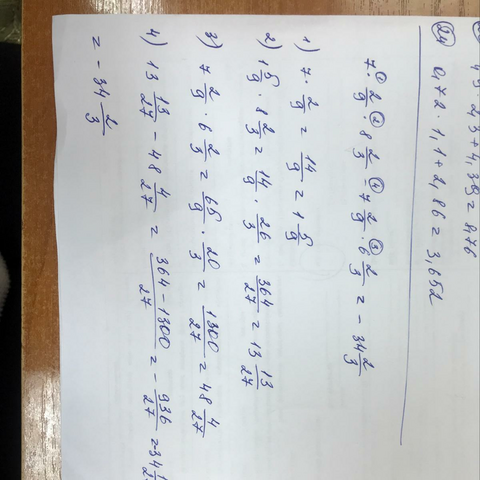 45·23+4,385=876
24 0,72·1,1+2,86=3,652
7·2/9·8 2/3-7 2/9·6 2/3=-34 2/3
1) 7·2/9=14/9=1 5/9
2) 1 5/9·8 2/3=14/9·26/3=364/27=13 13/27
3) 7 2/9·6 2/3=65/9·20/3=1300/27=48 4/27
4) 13 13/27-48 4/27=364-1300/27=-936/27=-34
=-34 2/3